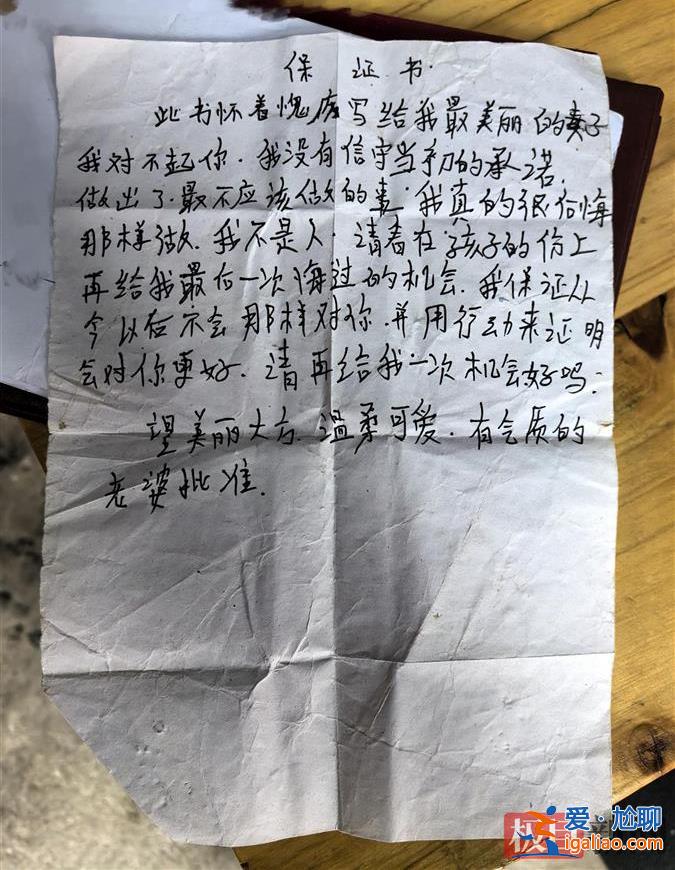 保 证 书
此书怀着愧疚写给我最美丽的妻子
我对不起你. 我没有信守当初的承诺.
做出了.最不应该做的事. 我真的很后悔
那样做. 我不是人. 请看在孩子的份上
再给我最后一次悔过的机会. 我保证从
今以后不会那样对你. 并用行动来证明
会对你更好. 请再给我一次机会好吗:
望美丽大方. 温柔可爱. 有气质的
老婆批准.
极目新
爱·尬聊
igaliao.com